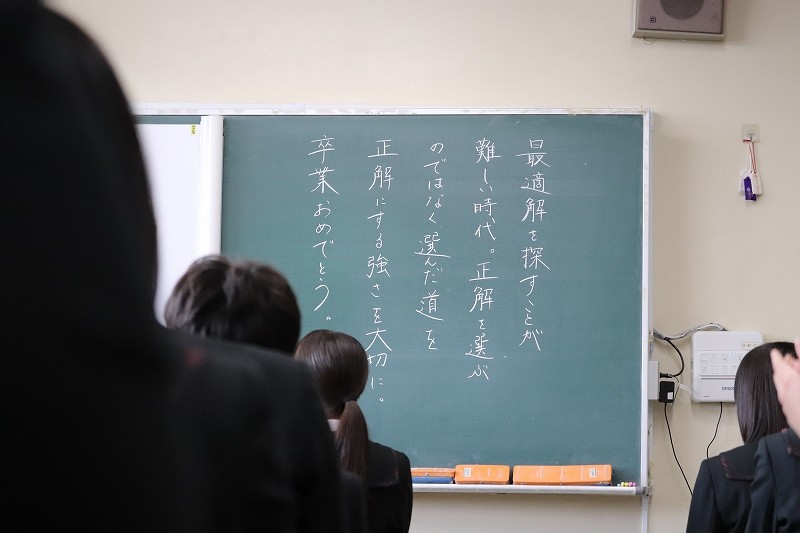 最適解を探すことが
難しい時代。正解を選ぶ
のではなく選んだ道を
正解にする強さを大切に。
卒業おめでとう。
EPSON